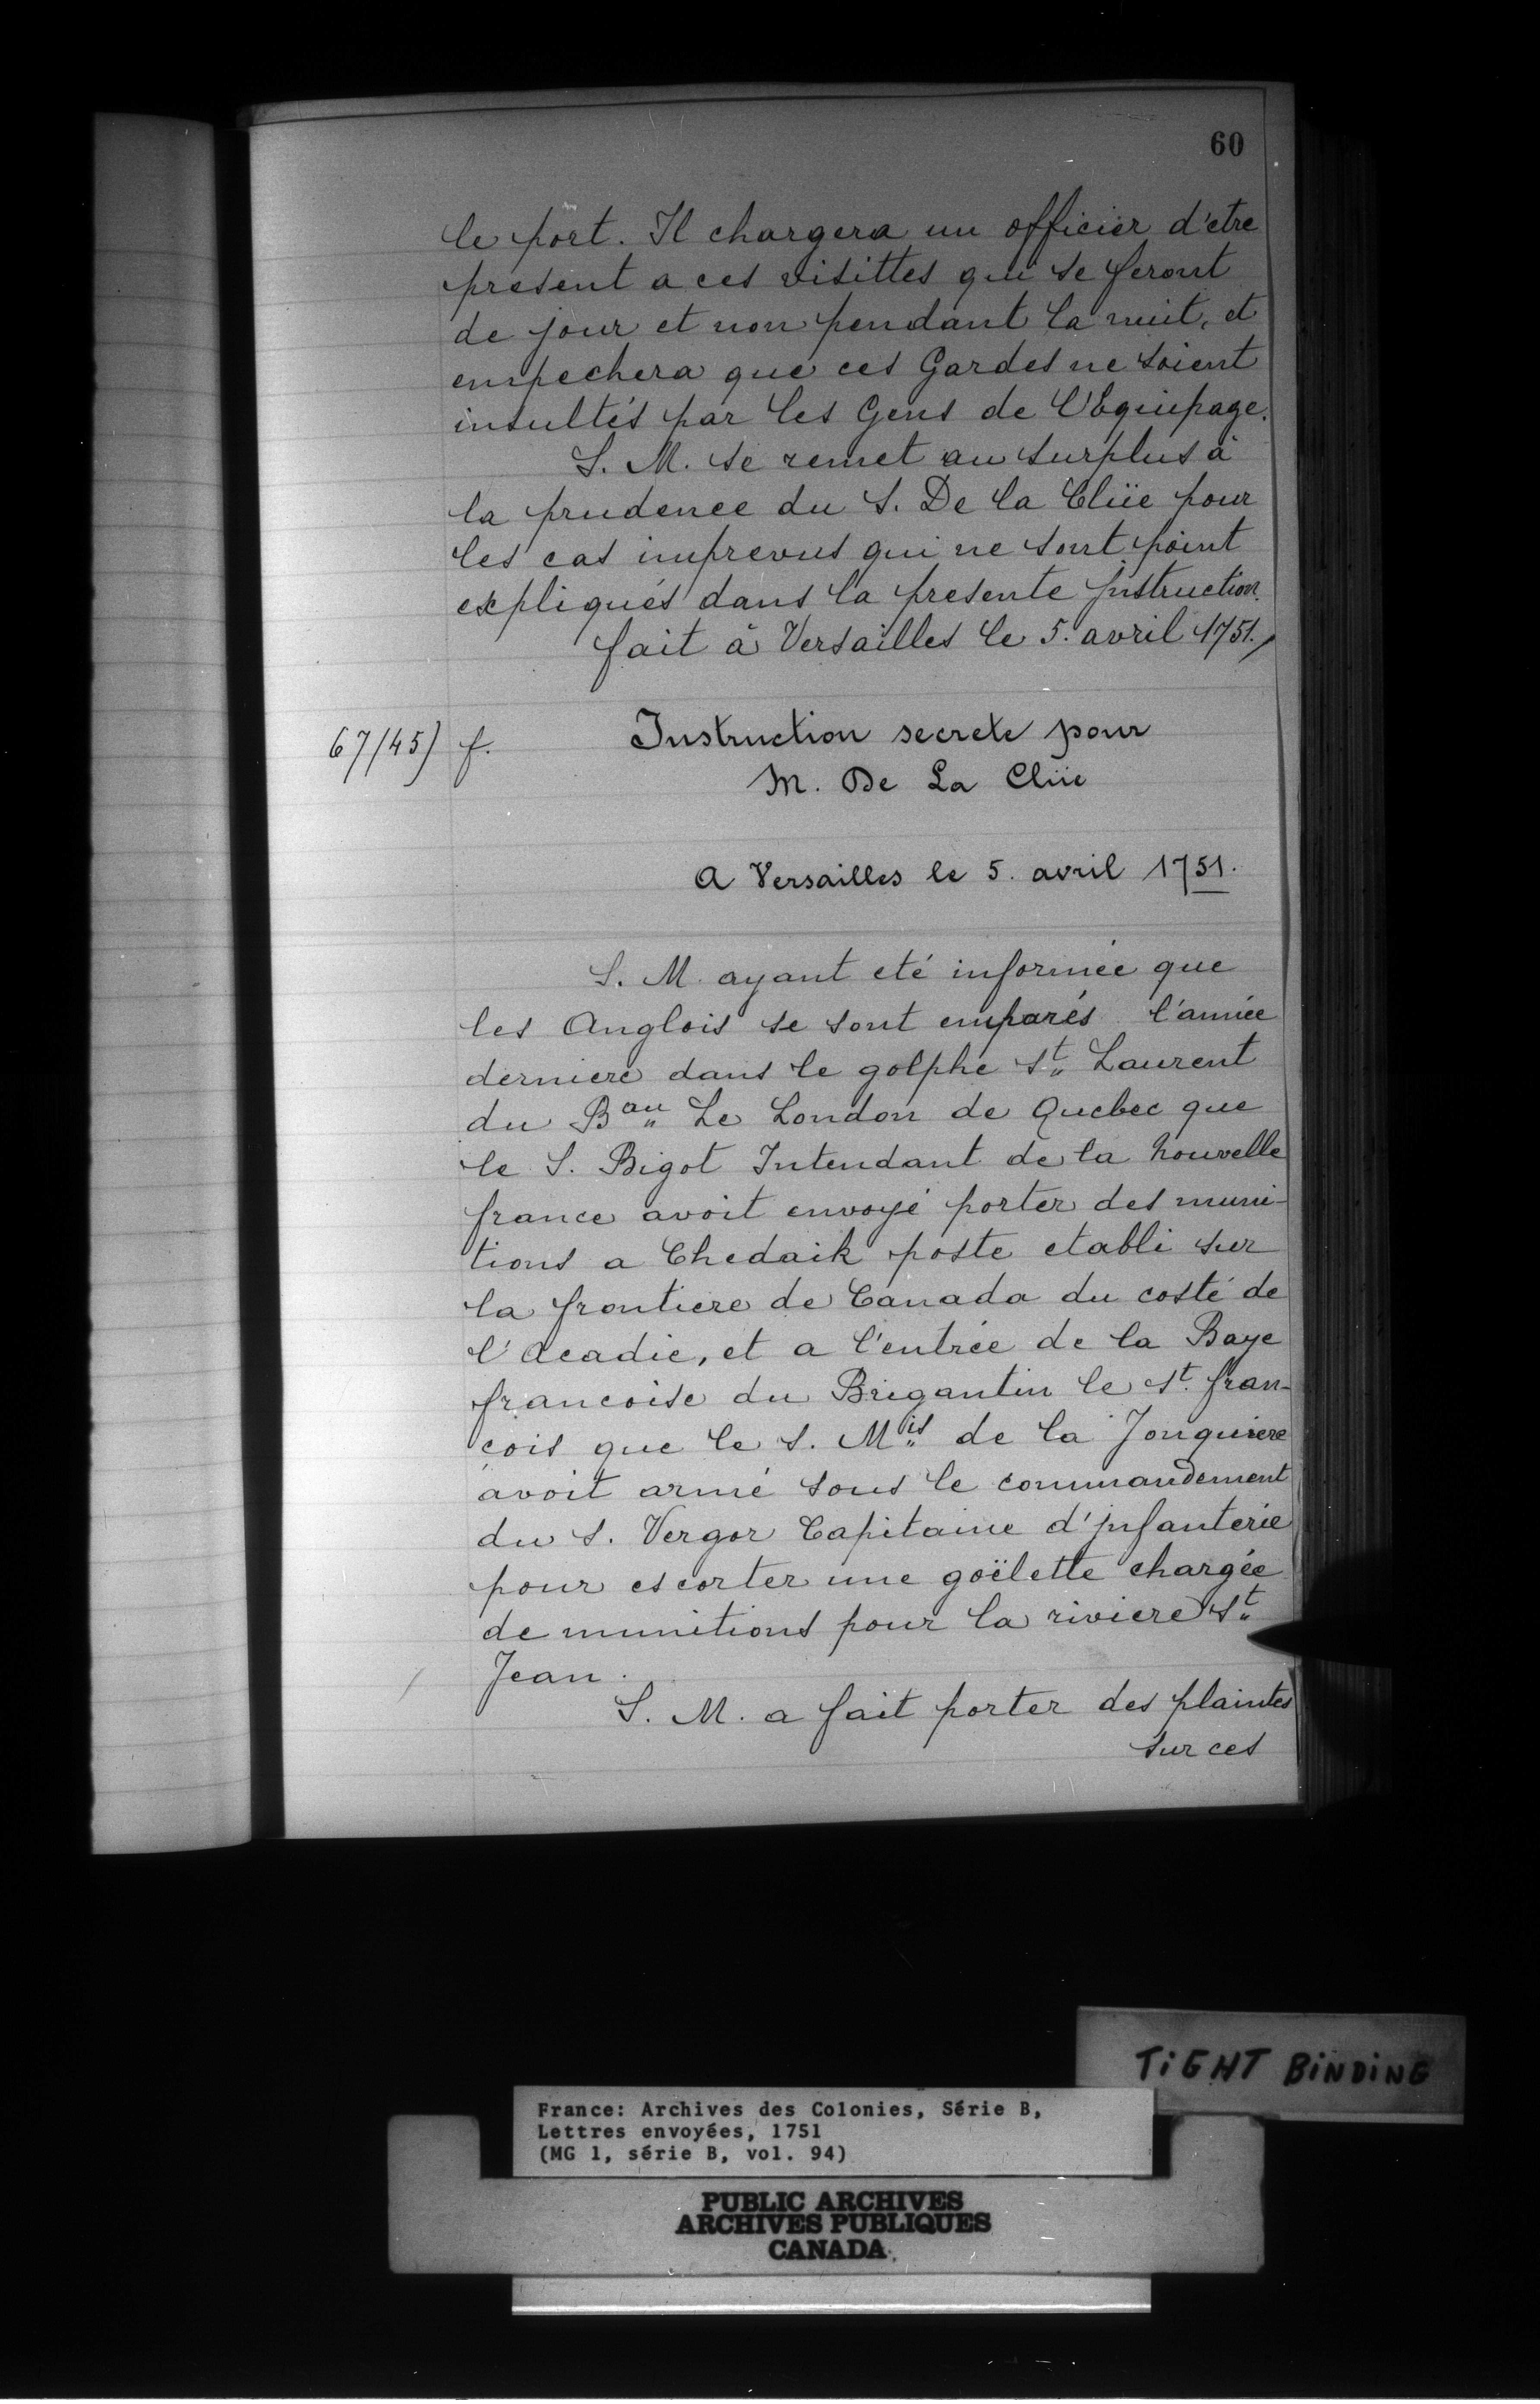 60
le port. Il chargera un officier d'etre
present a ces visittes qui se feront
de jour et non pendant la nuit, et
empechera que ces Gardes ne soient
insultés par les Gens de l'Equipage.
S. M. se remet au surplus à
la prudence du S. De la Clüe pour
les cas imprevus qui ne sont point
expliqués dans la presente Jnstruction.
fait à Versailles le 5. avril 1751./
67/(45) f.
Instruction secrete pour
M. De La Clüe
A Versailles le 5. avril 1751.
S. M. ayant eté informée que
les Anglois se sont emparés l'année
derniere dans le golphe St. Laurent
du Bau Le London de Quebec que
le S. Bigot Intendant de la Nouvelle
france avoit envoyé porter des muni-
tions a Chedaik poste etabli sur
la frontiere de Canada du costé de
l'Acadie, et a l'entrée de la Baye
francoise du Brigantin le St. fran-
çois que le S. Mis de la Jonquiere
avoit armé sous le commandement
du S. Vergor Capitaine d'jnfanterie
pour escorter une goëlette chargée
de munitions pour la riviere St
Jean.
S. M. a fait porter des plaintes
sur ces
TIGHT BINDING
France: Archives des Colonies, Série B,
Lettres envoyées, 1751
(MG 1, série B, vol. 94)
PUBLIC ARCHIVES
ARCHIVES PUBLIQUES
CANADA